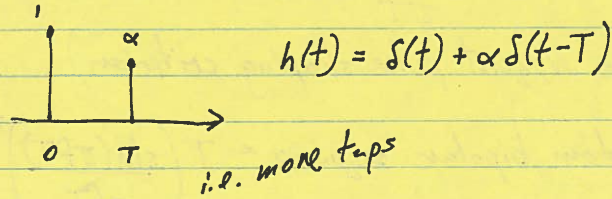 1 α h(t) = δ(t) + α δ(t-T)
0 T
i.e. more taps